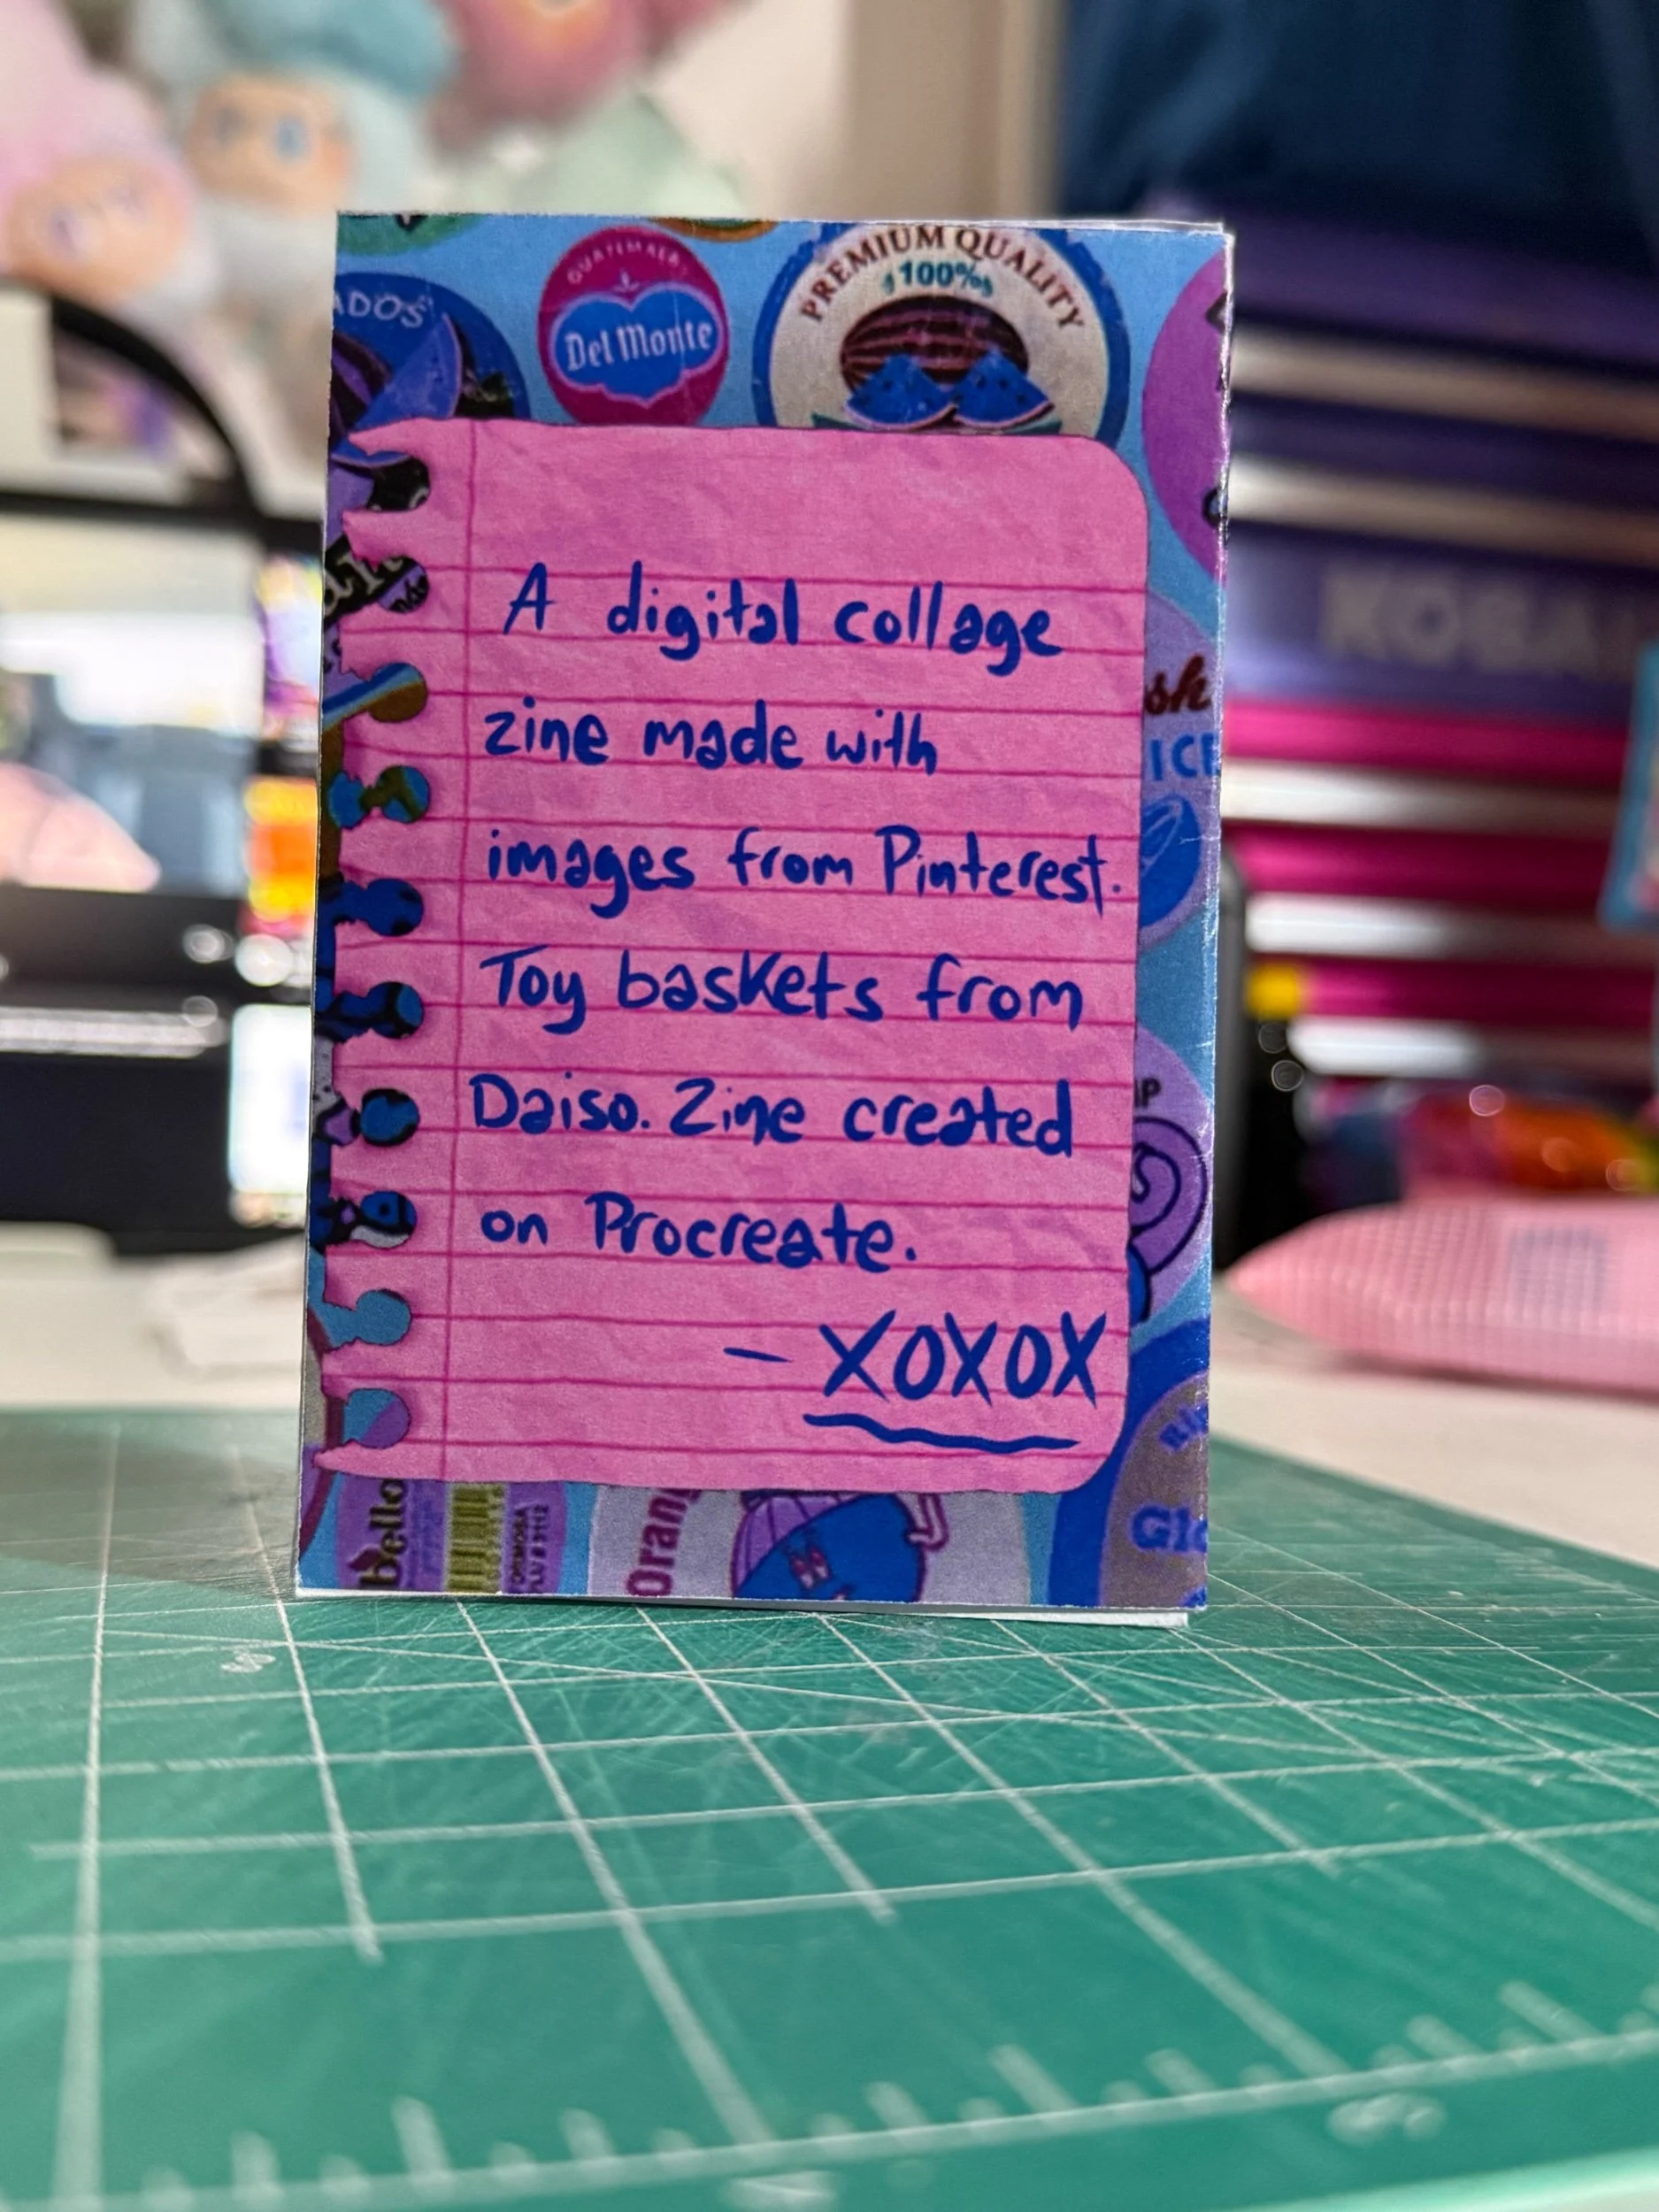 GUATEMALA
Del Monte
PREMIUM QUALITY
100%
ADOS
A digital collage
zine made with
images from Pinterest.
Toy baskets from
Daiso. Zine created
on Procreate.
- XOXOX
sh
ICE
IP
bello
Orang
Glo